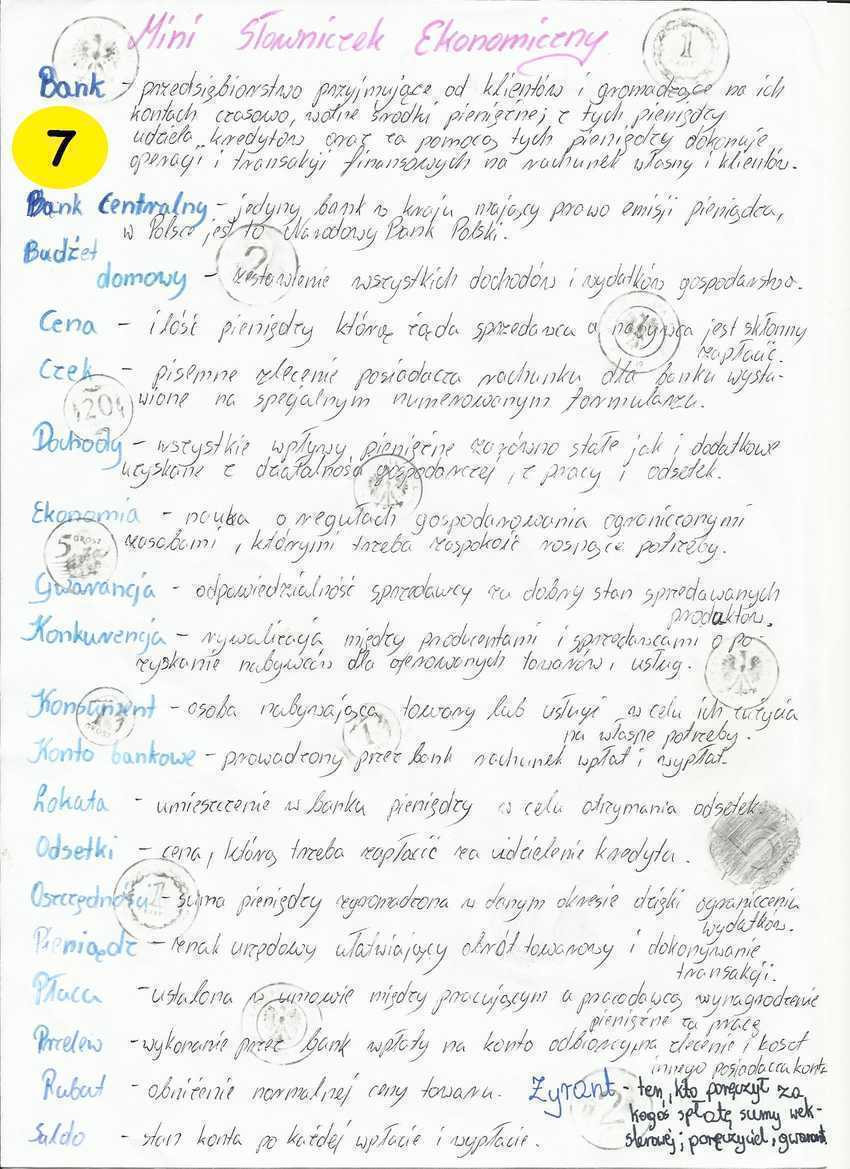 Mini Słowniczek Ekonomiczny
Bank - przedsiębiorstwo przyjmujące od klientów i gromadzące na ich
kontach czasowo, wolne środki pieniężnej z tych pieniędzy
udziela kredytów oraz za pomocą tych pieniędzy dokonuje
operacji i transakcji finansowych na rachunek własny i klientów.
7
Bank Centralny - jedyny bank w kraju mający prawo emisji pieniądza,
w Polsce jest to Narodowy Bank Polski.
Budżet
domowy - zestawienie wszystkich dochodów i wydatków gospodarstwa.
Cena - ilość pieniędzy którą żąda sprzedawca a nabywca jest skłonny
zapłacić.
Czek - pisemne zlecenie posiadacza rachunku dla banku wysta-
wione na specjalnym numerowanym formularzu.
Dochody - wszystkie wpływy pieniężne zarówno stałe jak i dodatkowe
uzyskane z działalności gospodarczej, z pracy i odsetek.
Ekonomia - nauka o regułach gospodarowania ograniczonymi
zasobami, którymi trzeba zaspokoić rosnące potrzeby.
5 GROSZ
Gwarancja - odpowiedzialność sprzedawcy za dobry stan sprzedawanych
produktów.
Konkurencja - rywalizacja między producentami i sprzedawcami o po-
zyskanie nabywców dla oferowanych towarów i usług.
Konsument - osoba nabywająca towary lub usługi w celu ich zużycia
na własne potrzeby.
Konto bankowe - prowadzony przez bank rachunek wpłat i wypłat.
Lokata - umieszczenie w banku pieniędzy w celu otrzymania odsetek.
Odsetki - cena, którą trzeba zapłacić za udzielenie kredytu.
Oszczędności - suma pieniędzy zgromadzona w danym okresie dzięki ograniczeniu
wydatków.
Pieniądz - znak urzędowy ułatwiający obrót towarowy i dokonywanie
transakcji.
Płaca - ustalona w umowie między pracującym a pracodawcą wynagrodzenie
pieniężne za pracę
Przelew - wykonanie przez bank wpłaty na konto odbiorcy na zlecenie i koszt
innego posiadacza konta
Rabat - obniżenie normalnej ceny towaru.
Saldo - stan konta po każdej wpłacie i wypłacie.
Żyrant - ten, kto poręczył za
kogoś spłatę sumy wek-
slowej; poręczyciel, gwarant.